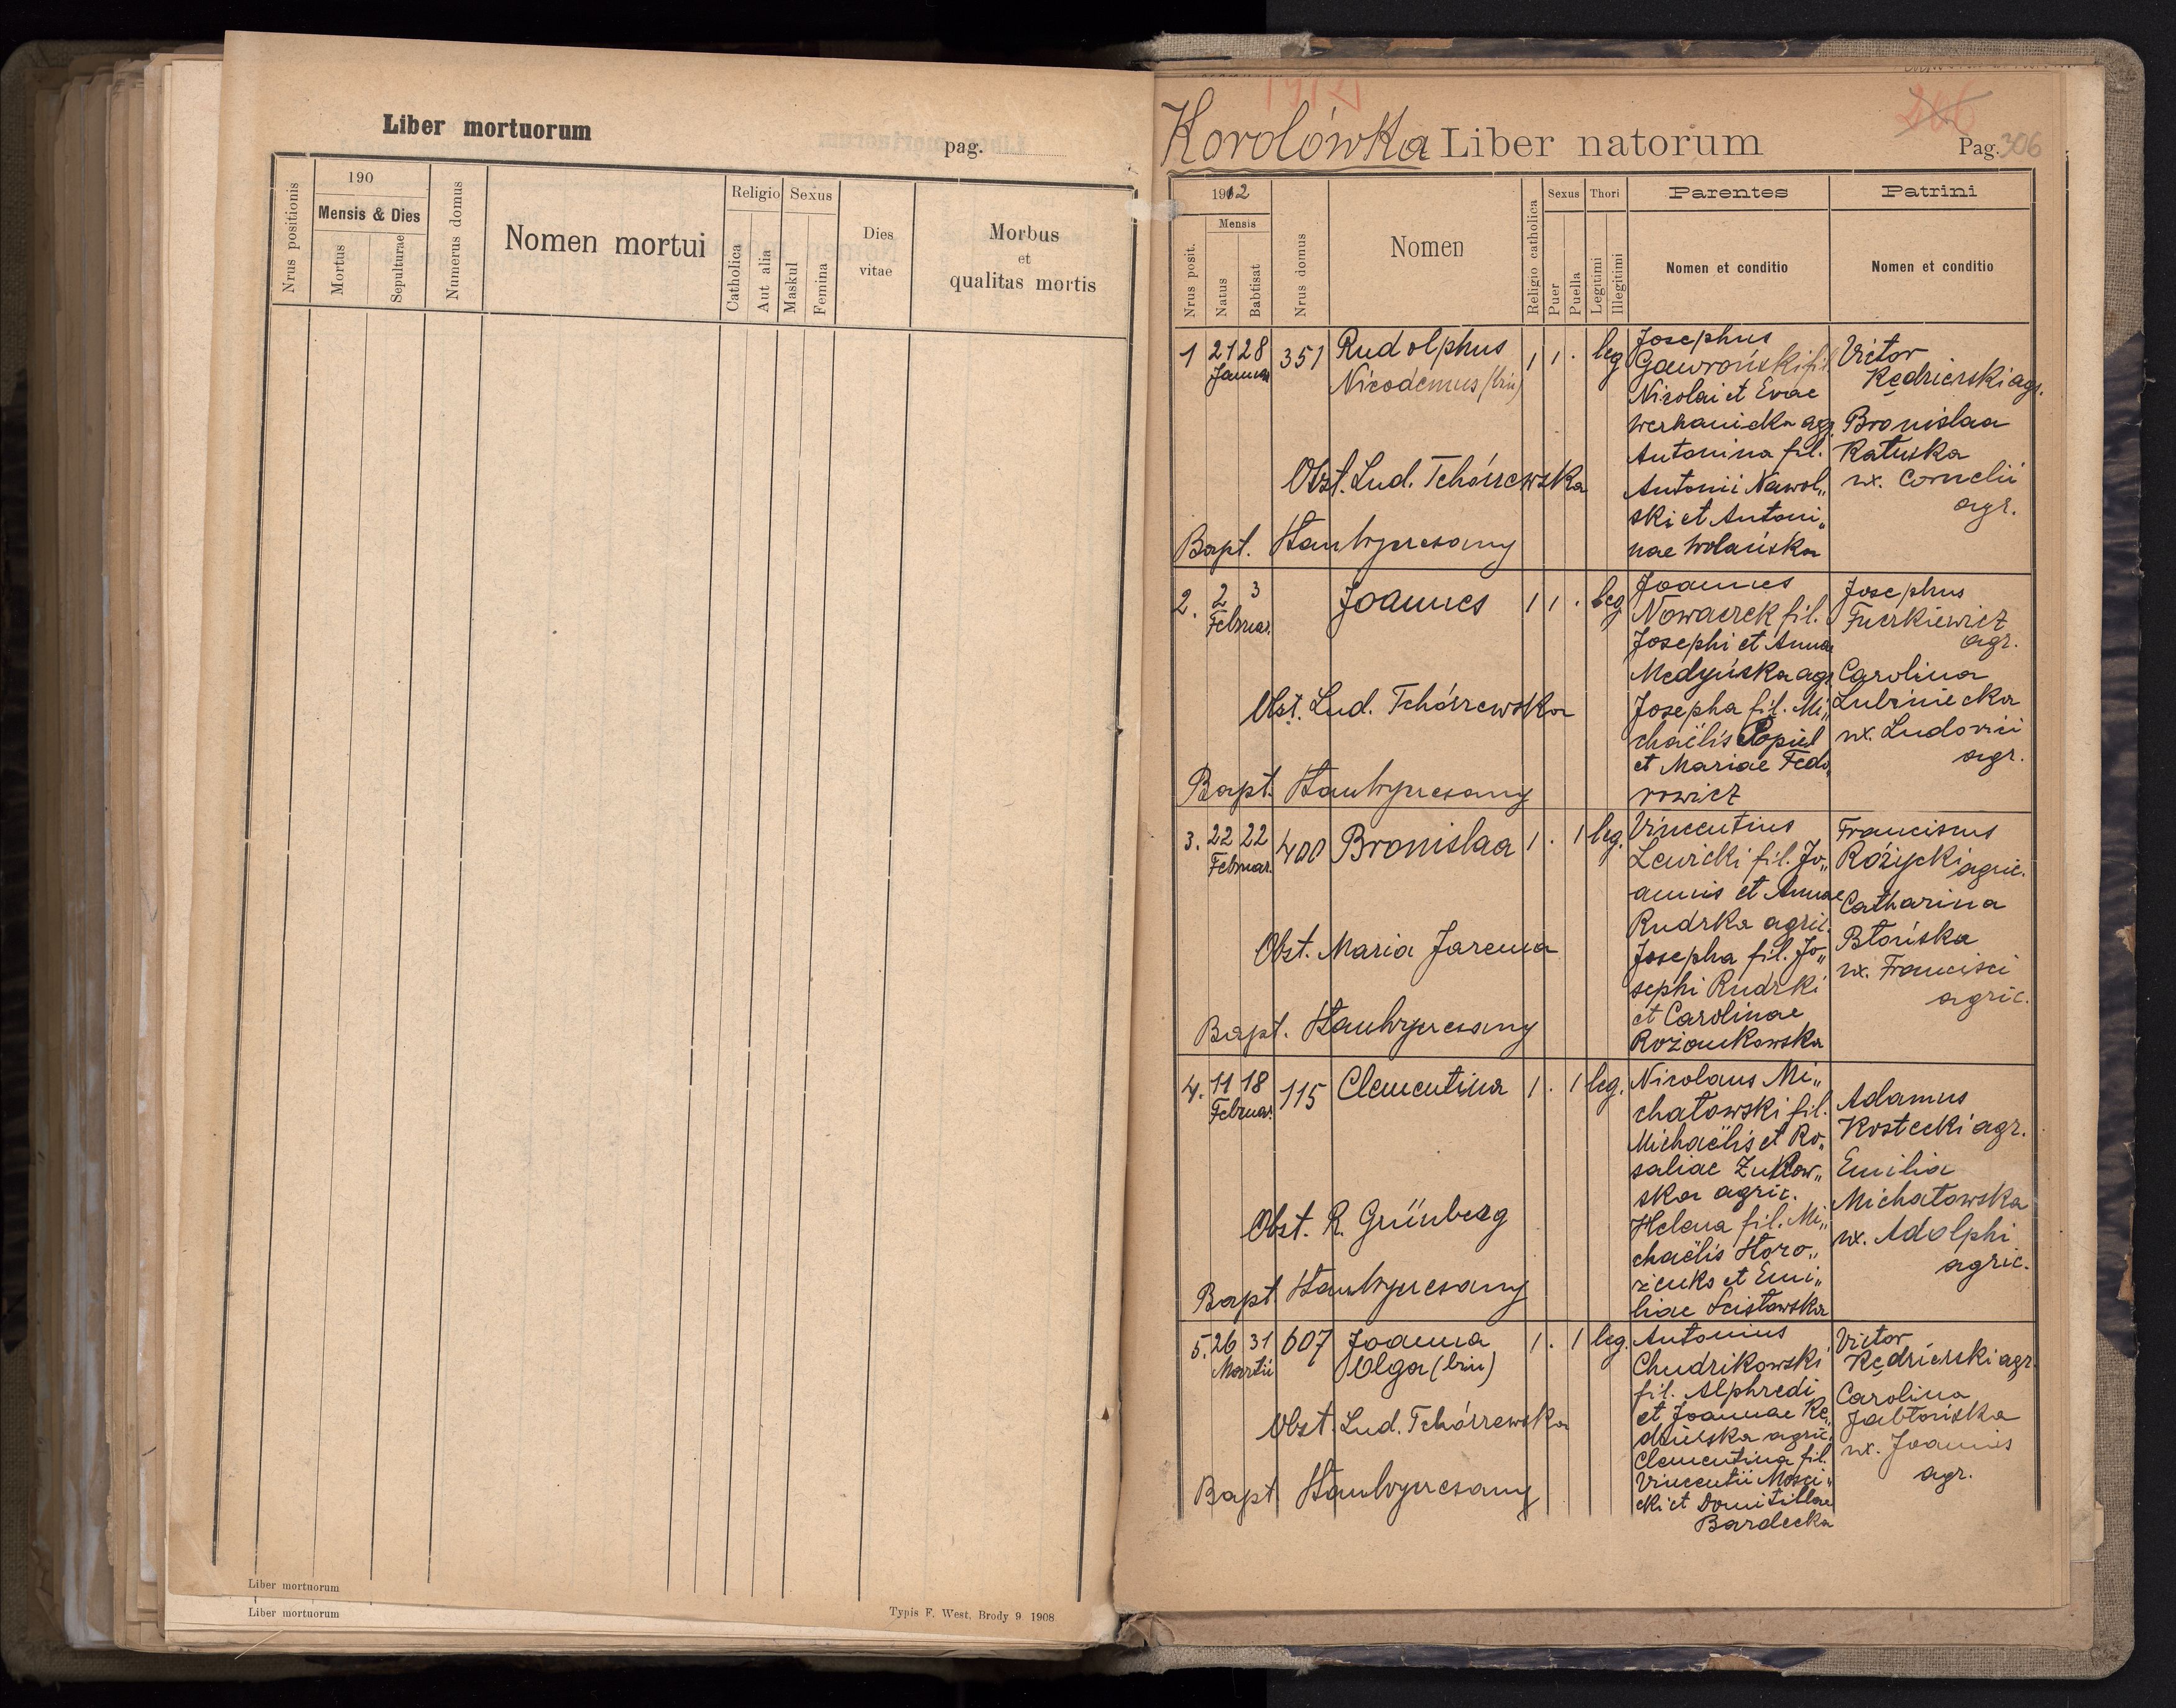 Liber mortuorum
pag.
Nrus positionis
190
Mensis & Dies
Mortus
Sepulturae
Numerus domus
Nomen mortui
Religio
Catholica
Aut alia
Sexus
Maskul
Femina
Dies
vitae
Morbus
et
qualitas mortis
Liber mortuorum
Liber mortuorum
Typis F. West, Brody 9 1908
1912
Korolówka Liber natorum
206
Pag. 306
Nrus posit.
1912
Mensis
Natus
Babtisat
Nrus domus
Nomen
Religio catholica
Sexus
Puer
Puella
Thori
Legitimi
Illegitimi
Parentes
Nomen et conditio
Patrini
Nomen et conditio
1 21 28 351 Rudolphus 1 1 . leg
Januar Nicodemus (bin)
Obst. Lud. Tchórzewska
Bapt.
Josephus
Gawroński fil.
Nicolai et Evae
Werhanicka agr.
Antonina fil.
Antonii Nawol„
ski et Antoni„
nae Wolańska
Victor
Kędzierski agr.
Bronislaa
Ratuska
ux. Cornelii
agr.
2. 2 3 Joannes 1 1 . leg
Februar.
Obst. Lud. Tchórzewska
Bapt.
Joannes
Nowaczek fil.
Josephi et Annae
Medyńska agr
Josepha fil. Mi„
chaëlis Popiel
et Mariae Fedo„
rowicz
Josephus
agr.
Carolina
Lubiniecka
ux. Ludovici
agr.
3. 22 22 400 Bronislaa 1 . 1 leg.
Februar.
Obst. Maria Jarema
Bapt.
Vincentius
Lewicki fil. Jo„
annis et Annae
Rudzka agric.
Josepha fil. Jo„
sephi Rudzki
et Carolinae
Rożankowska
Franciscus
Różycki agric.
Catharina
Błońska
ux. Francisci
agric.
4. 11 18 115 Clementina 1 . 1 leg.
Februar.
Obst. R. Grünberg
Bapt.
Nicolaus Mi„
chałowski fil.
Michaëlis et Ro„
saliae Żukow„
ska agric.
Helena fil. Mi„
chaëlis Horo„
żenko et Emi„
liae Scisłowska
Adamus
Kostecki agr.
Emilia
Michałowska
ux. Adolphi
agric.
5. 26 31 607 Joanna 1 . 1 leg.
Martii Olga (bin)
Obst. Lud. Tchórzewska
Bapt.
Antonius
Chudzikowski
fil. Alphredi
et Joannae Kę„
dzielska agric.
Clementina fil.
Vincentii Mosci„
cki et Domitillae
Bardecka
Victor
Kędzierski agr.
Carolina
Jabłońska
ux. Joannis
agr.